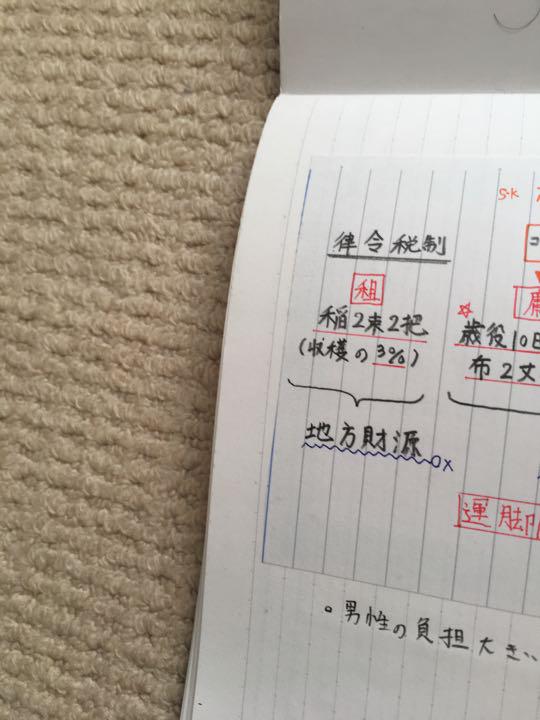 s.k
律令税制
租
稲2束2把
(収穫の3%)
地方財源
ox
☆
歳役10日
布2丈
運脚
。男性の負担大き‥